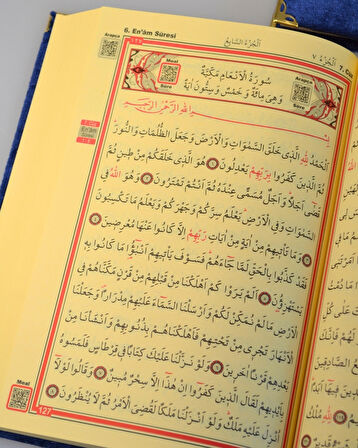 Arapça
6. En'âm Sûresi
اَلْجُزْءُ السَّابِعُ
اَلْجُزْءُ ٧
Meal
Arapça
Sûre
سُورَةُ الْاَنْعَامِ مَكِّيَّةٌ
وَهِىَ مِائَةٌ وَخَمْسٌ وَسِتُّونَ اٰيَةً
بِسْمِ اللّٰهِ الرَّحْمٰنِ الرَّحِيمِ
اَلْحَمْدُ لِلّٰهِ الَّذِى خَلَقَ السَّمٰوَاتِ وَالْاَرْضَ وَجَعَلَ الظُّلُمَاتِ وَالنُّورَ
ثُمَّ الَّذِينَ كَفَرُوا بِرَبِّهِمْ يَعْدِلُونَ ۝ هُوَ الَّذِى خَلَقَكُمْ مِنْ طِينٍ ثُمَّ
قَضٰٓى اَجَلًا وَاَجَلٌ مُسَمًّى عِنْدَهُ ثُمَّ اَنْتُمْ تَمْتَرُونَ ۝ وَهُوَ اللّٰهُ فِى
السَّمٰوَاتِ وَفِى الْاَرْضِ يَعْلَمُ سِرَّكُمْ وَجَهْرَكُمْ وَيَعْلَمُ مَا تَكْسِبُونَ
۝ وَمَا تَأْتِيهِمْ مِنْ اٰيَةٍ مِنْ اٰيَاتِ رَبِّهِمْ اِلَّا كَانُوا عَنْهَا مُعْرِضِينَ ۝
فَقَدْ كَذَّبُوا بِالْحَقِّ لَمَّا جَاءَهُمْ فَسَوْفَ يَأْتِيهِمْ اَنْبٰٓؤُا مَا كَانُوا بِهِ
يَسْتَهْزِؤُنَ ۝ اَلَمْ يَرَوْا كَمْ اَهْلَكْنَا مِنْ قَبْلِهِمْ مِنْ قَرْنٍ مَكَّنَّاهُمْ فِى
الْاَرْضِ مَا لَمْ نُمَكِّنْ لَكُمْ وَاَرْسَلْنَا السَّمَاءَ عَلَيْهِمْ مِدْرَارًا وَجَعَلْنَا
الْاَنْهَارَ تَجْرِى مِنْ تَحْتِهِمْ فَاَهْلَكْنَاهُمْ بِذُنُوبِهِمْ وَاَنْشَأْنَا مِنْ
بَعْدِهِمْ قَرْنًا اٰخَرِينَ ۝ وَلَوْ نَزَّلْنَا عَلَيْكَ كِتَابًا فِى قِرْطَاسٍ فَلَمَسُوهُ
بِاَيْدِيهِمْ لَقَالَ الَّذِينَ كَفَرُوا اِنْ هٰذَا اِلَّا سِحْرٌ مُبِينٌ ۝ وَقَالُوا لَوْلَا
اُنْزِلَ عَلَيْهِ مَلَكٌ وَلَوْ اَنْزَلْنَا مَلَكًا لَقُضِىَ الْاَمْرُ ثُمَّ لَا يُنْظَرُونَ ۝
Meal
127